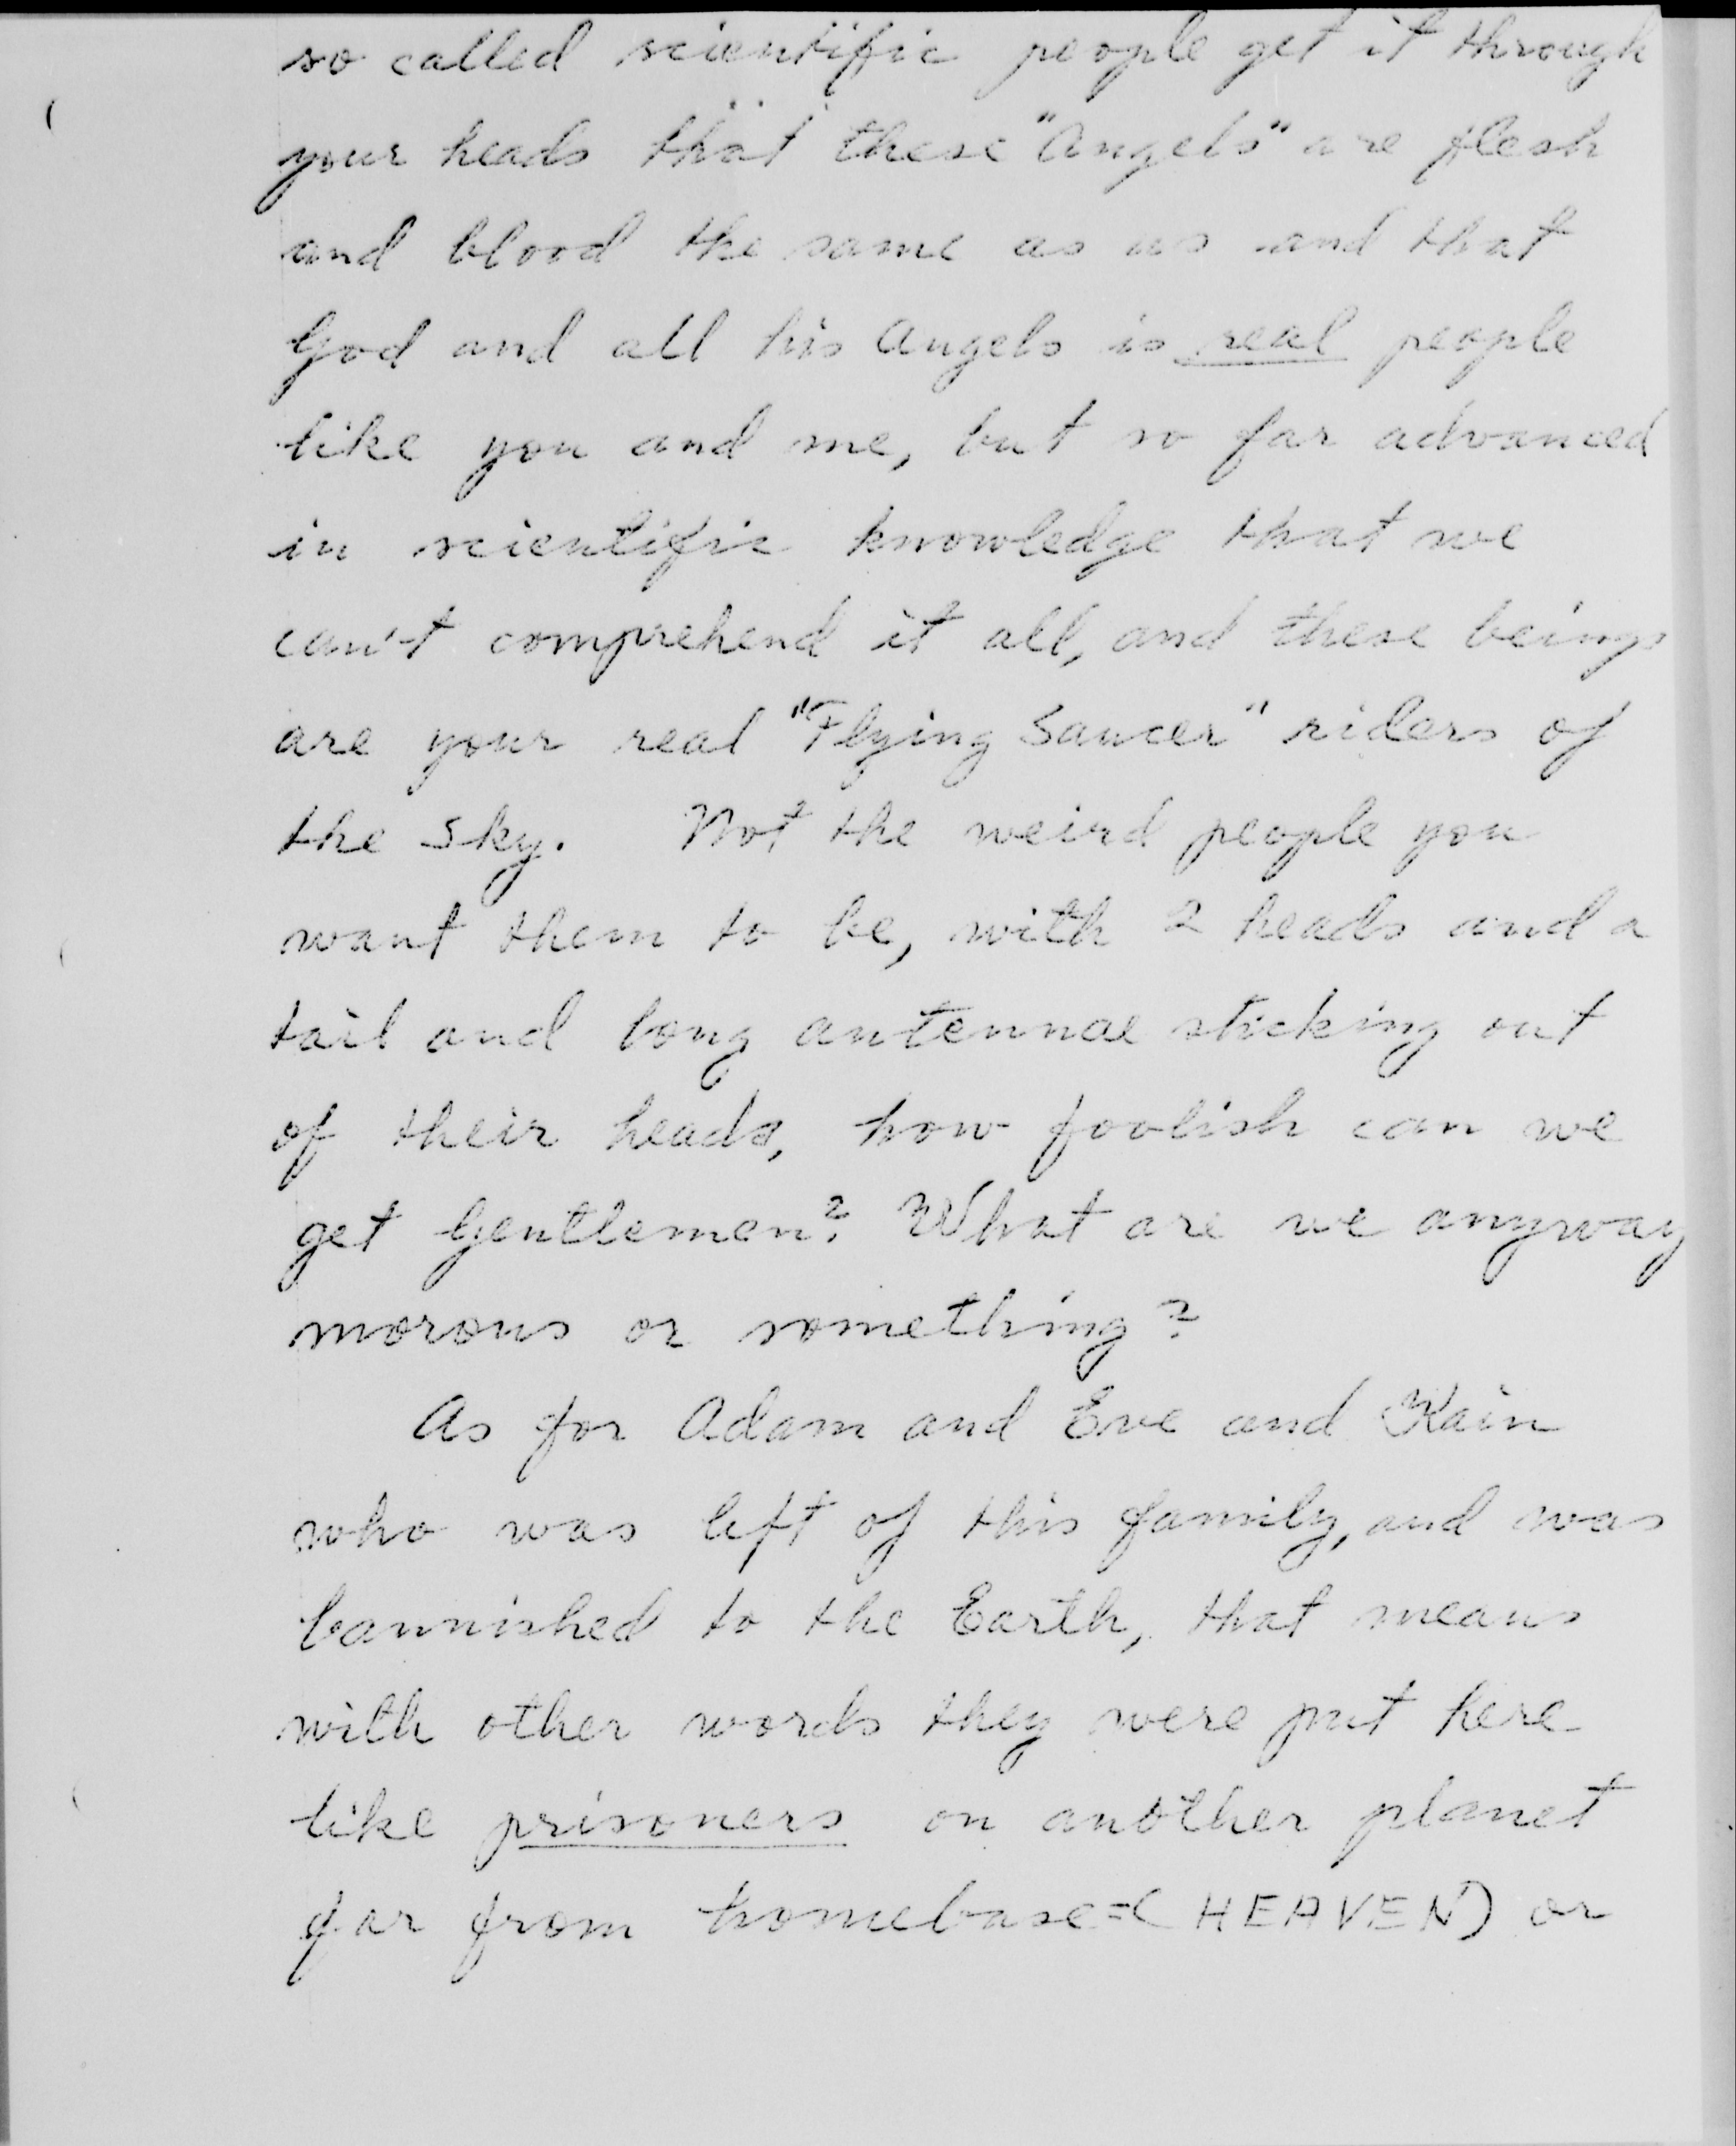 so called scientific people get it through
your heads that these "Angels" are flesh
and blood the same as us and that
God and all his Angels is real people
like you and me, but so far advanced
in scientific knowledge that we
can't comprehend it all, and these beings
are your real "Flying Saucer" riders of
the Sky. Not the weird people you
want them to be, with 2 heads and a
tail and long antennae sticking out
of their heads, how foolish can we
get Gentlemen? What are we anyway
morons or something?
As for Adam and Eve and Kain
who was left of this family, and was
bannished to the Earth, that means
with other words they were put here
like prisoners on another planet
far from homebase=(HEAVEN) or